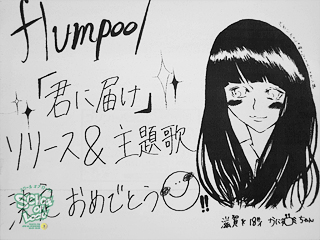 flumpool
「君に届け」
リリース&主題歌
決定 おめでとう!!
滋賀県 18才
ちゃん